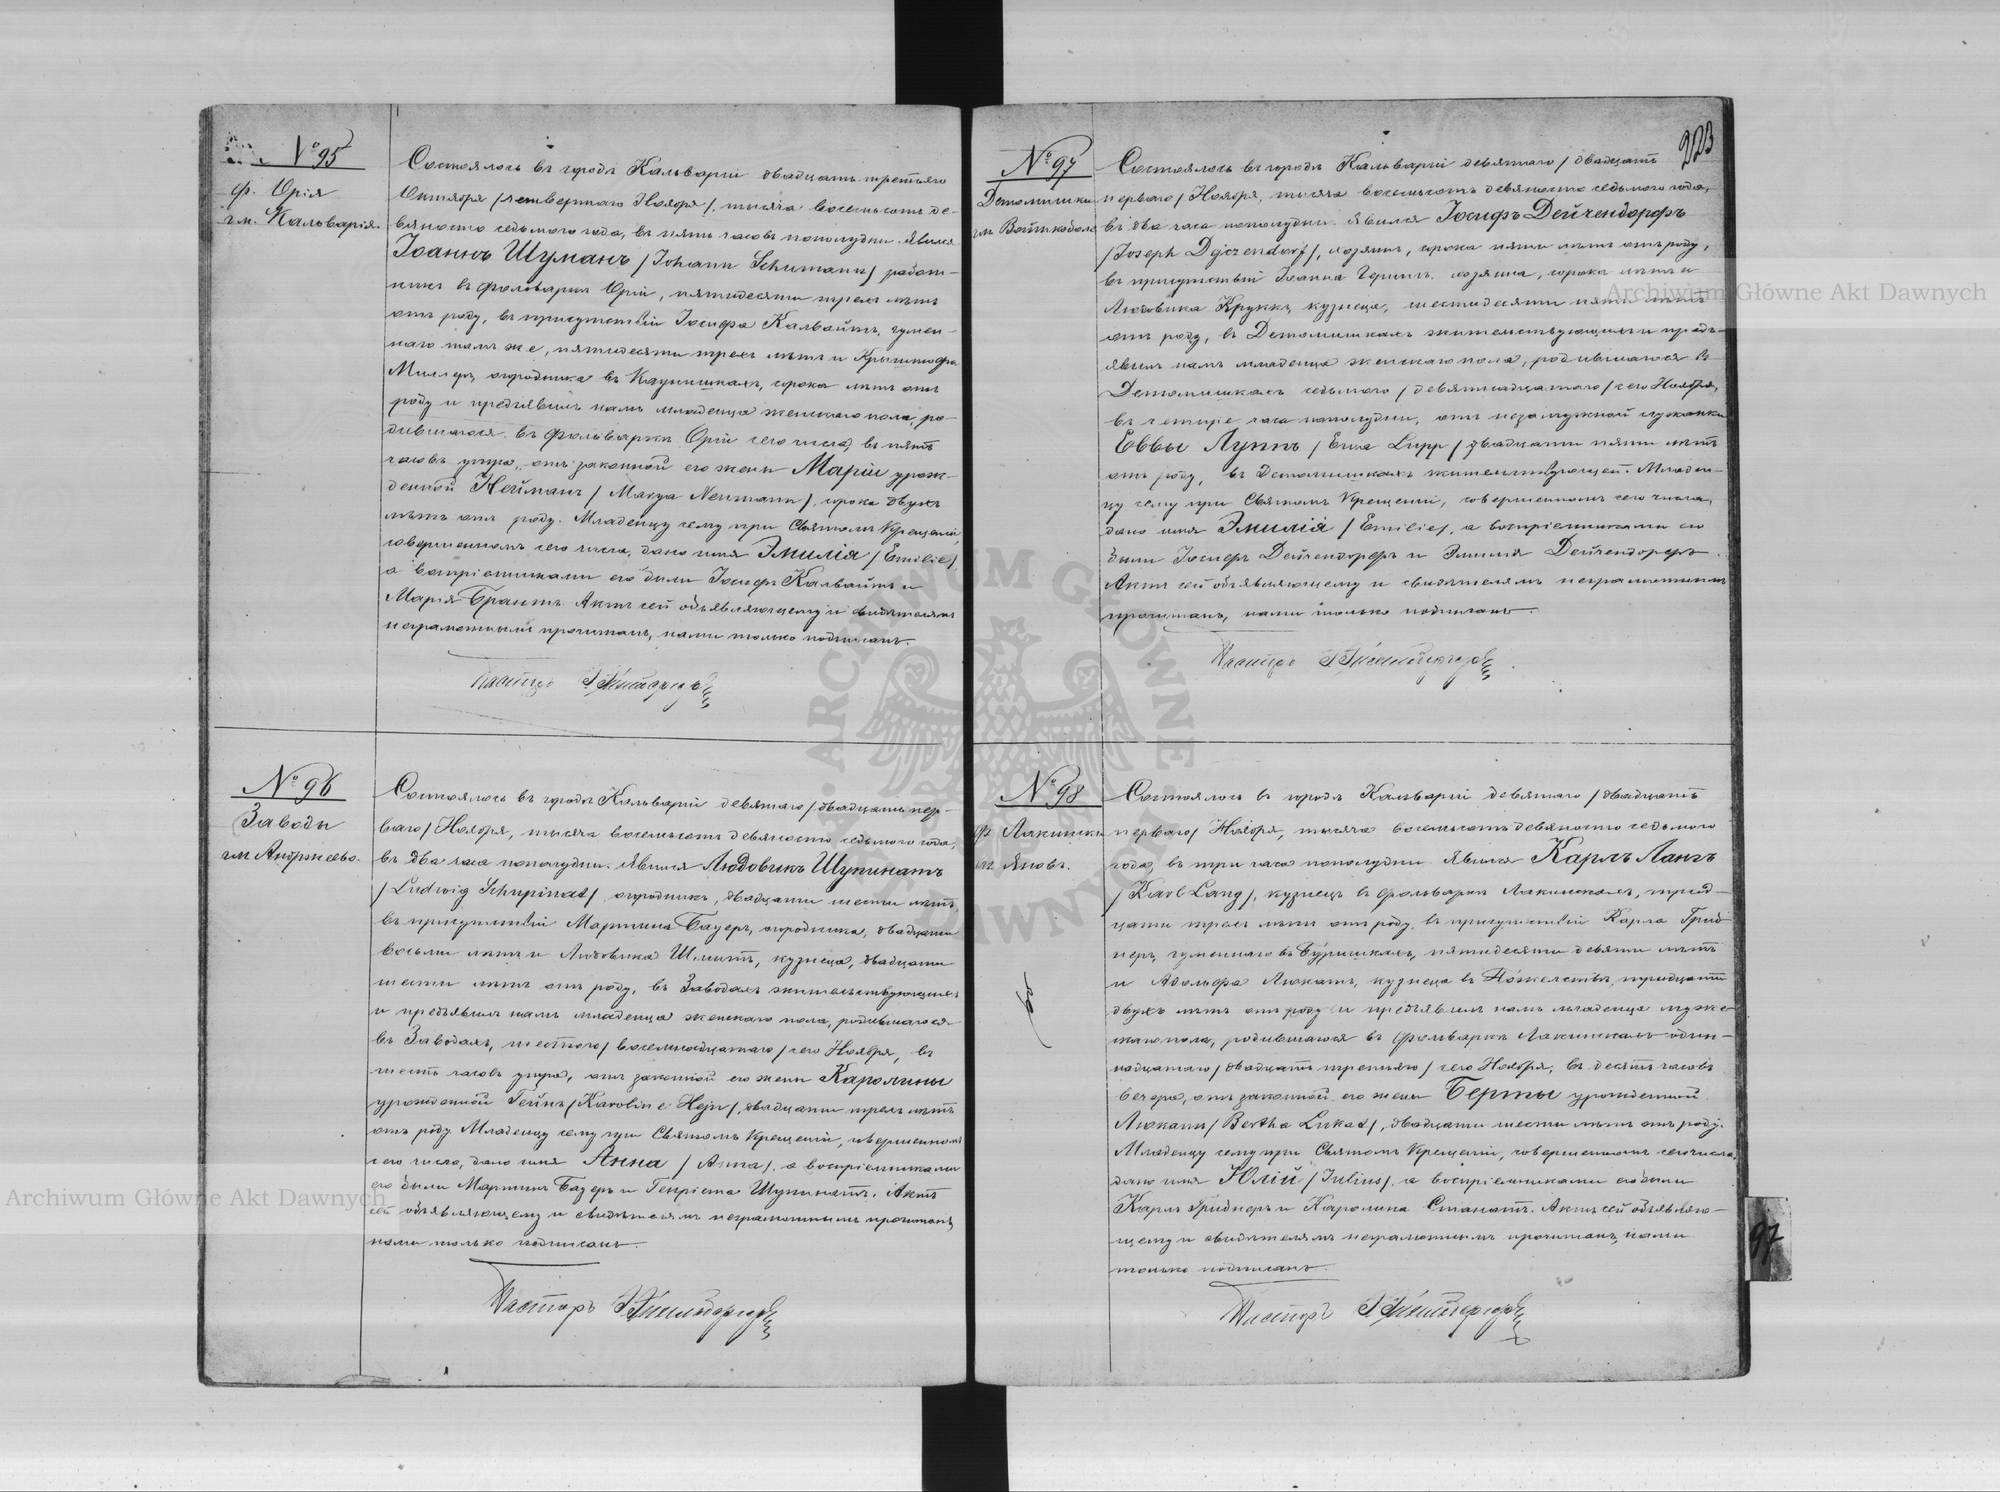 № 95
ф. Орія
гм. Кальварія.
Состоялось въ городѣ Кальваріи двадцать третьяго
Октября /четвертаго Ноября/, тысяча восемьсотъ де-
вяносто седьмого года, въ пять часовъ пополудни. Явился
Іоаннъ Шуманъ /Johann Schumann/ работ-
никъ въ фольваркѣ Орія, пятидесяти трехъ лѣтъ
отъ роду, въ присутствіи Іосифа Калвайтъ, гумен-
наго тамъ же, пятидесяти трехъ лѣтъ и Крыштофа
Миллеръ, огородника въ сорока лѣтъ отъ
роду и предъявилъ намъ младенца женскаго пола, ро-
дившагося въ фольваркѣ Орія сего числа, въ пять
часовъ утра, отъ законной его жены Маріи урож-
денной Нейманъ / Neumann/, сорока двухъ
лѣтъ отъ роду. Младенцу сему при Святомъ Крещеніи,
совершенномъ сего числа, дано имя Эмилія /Emilie/,
а воспріемниками его были Іосифъ Калвайтъ и
Марія Брантъ. Актъ сей объявляющему и свидѣтелямъ
неграмотнымъ прочитанъ, нами только подписанъ.
Пасторъ
№ 96
Заводы
гм. Андржеево.
Состоялось въ городѣ Кальваріи девятаго /двадцать пер-
ваго/ Ноября, тысяча восемьсотъ девяносто седьмого года,
въ два часа пополудни. Явился Людовикъ Шупинатъ
/Ludwig Schupinat/, огородникъ, двадцати шести лѣтъ,
въ присутствіи Мартина Бауеръ, огородника, двадцати
восьми лѣтъ и Людовика Шмитъ, кузнеца, двадцати
шести лѣтъ отъ роду, въ Заводахъ жительствующихъ
и предъявилъ намъ младенца женскаго пола, родившагося
въ Заводахъ, шестого /восемнадцатаго/ сего Ноября, въ
шесть часовъ утра, отъ законной его жены Каролины
урожденной Гейнъ /Karoline Hejn/, двадцати трехъ лѣтъ
отъ роду. Младенцу сему при Святомъ Крещеніи, совершенномъ
сего числа, дано имя Анна /Anna/, а воспріемниками
его были Мартинъ Бауеръ и Генріета Шупинатъ. Актъ
сей объявляющему и свидѣтелямъ неграмотнымъ прочитанъ,
нами только подписанъ.
Пасторъ
223
№ 97
Детомишки
гм. Войткобол
Состоялось въ городѣ Кальваріи девятаго /двадцать
перваго/ Ноября, тысяча восемьсотъ девяносто седьмого года,
въ два часа пополудни. Явился Іосифъ Дейчендорфъ
/Joseph Dejczendorf/, хозяинъ, сорока пяти лѣтъ отъ роду,
въ присутствіи Іоанна хозяина, сорока лѣтъ и
Людовика Круккъ, кузнеца, шестидесяти пяти лѣтъ
отъ роду, въ Детомишкахъ жительствующихъ и предъ-
явилъ намъ младенца женскаго пола, родившагося въ
Детомишкахъ седьмого /девятнадцатаго/ сего Ноября,
въ четыре часа пополудни, отъ незамужной служанки
Еввы Луппъ /Ewa Lupp/ двадцати пяти лѣтъ
отъ роду, въ Детомишкахъ жительствующей. Младен-
цу сему при Святомъ Крещеніи, совершенномъ сего числа,
дано имя Эмилія /Emilie/, а воспріемниками его
были Іосифъ Дейчендорфъ и Эмилія Дейчендорфъ.
Актъ сей объявляющему и свидѣтелямъ неграмотнымъ
прочитанъ, нами только подписанъ.
Пасторъ
№ 98
ф. Лакински
гм. Яновъ.
Состоялось въ городѣ Кальваріи девятаго /двадцать
перваго/ Ноября, тысяча восемьсотъ девяносто седьмого
года, въ три часа пополудни. Явился Карлъ Лангъ
/Karl Lang/, кузнецъ въ фольваркѣ Лакинскахъ, трид-
цати трехъ лѣтъ отъ роду, въ присутствіи Карла Грид-
неръ, гуменнаго въ пятидесяти девяти лѣтъ
и Адольфа Люкатъ, кузнеца въ тридцати
двухъ лѣтъ отъ роду и предъявилъ намъ младенца муже-
скаго пола, родившагося въ фольваркѣ Лакинскахъ один-
надцатаго /двадцать третьяго/ сего Ноября, въ десять часовъ
вечера, отъ законной его жены Берты урожденной
Люкатъ /Bertha Lukat/, двадцати шести лѣтъ отъ роду.
Младенцу сему при Святомъ Крещеніи, совершенномъ сего числа,
дано имя Юлій /Julius/, а воспріемниками его были
Карлъ Гриднеръ и Каролина Станатъ. Актъ сей объявляю-
щему и свидѣтелямъ неграмотнымъ прочитанъ, нами
только подписанъ.
Пасторъ
97
Archiwum Główne Akt Dawnych
Archiwum Główne Akt Dawnych
ARCHIWUM GŁÓWNE AKT DAWNYCH